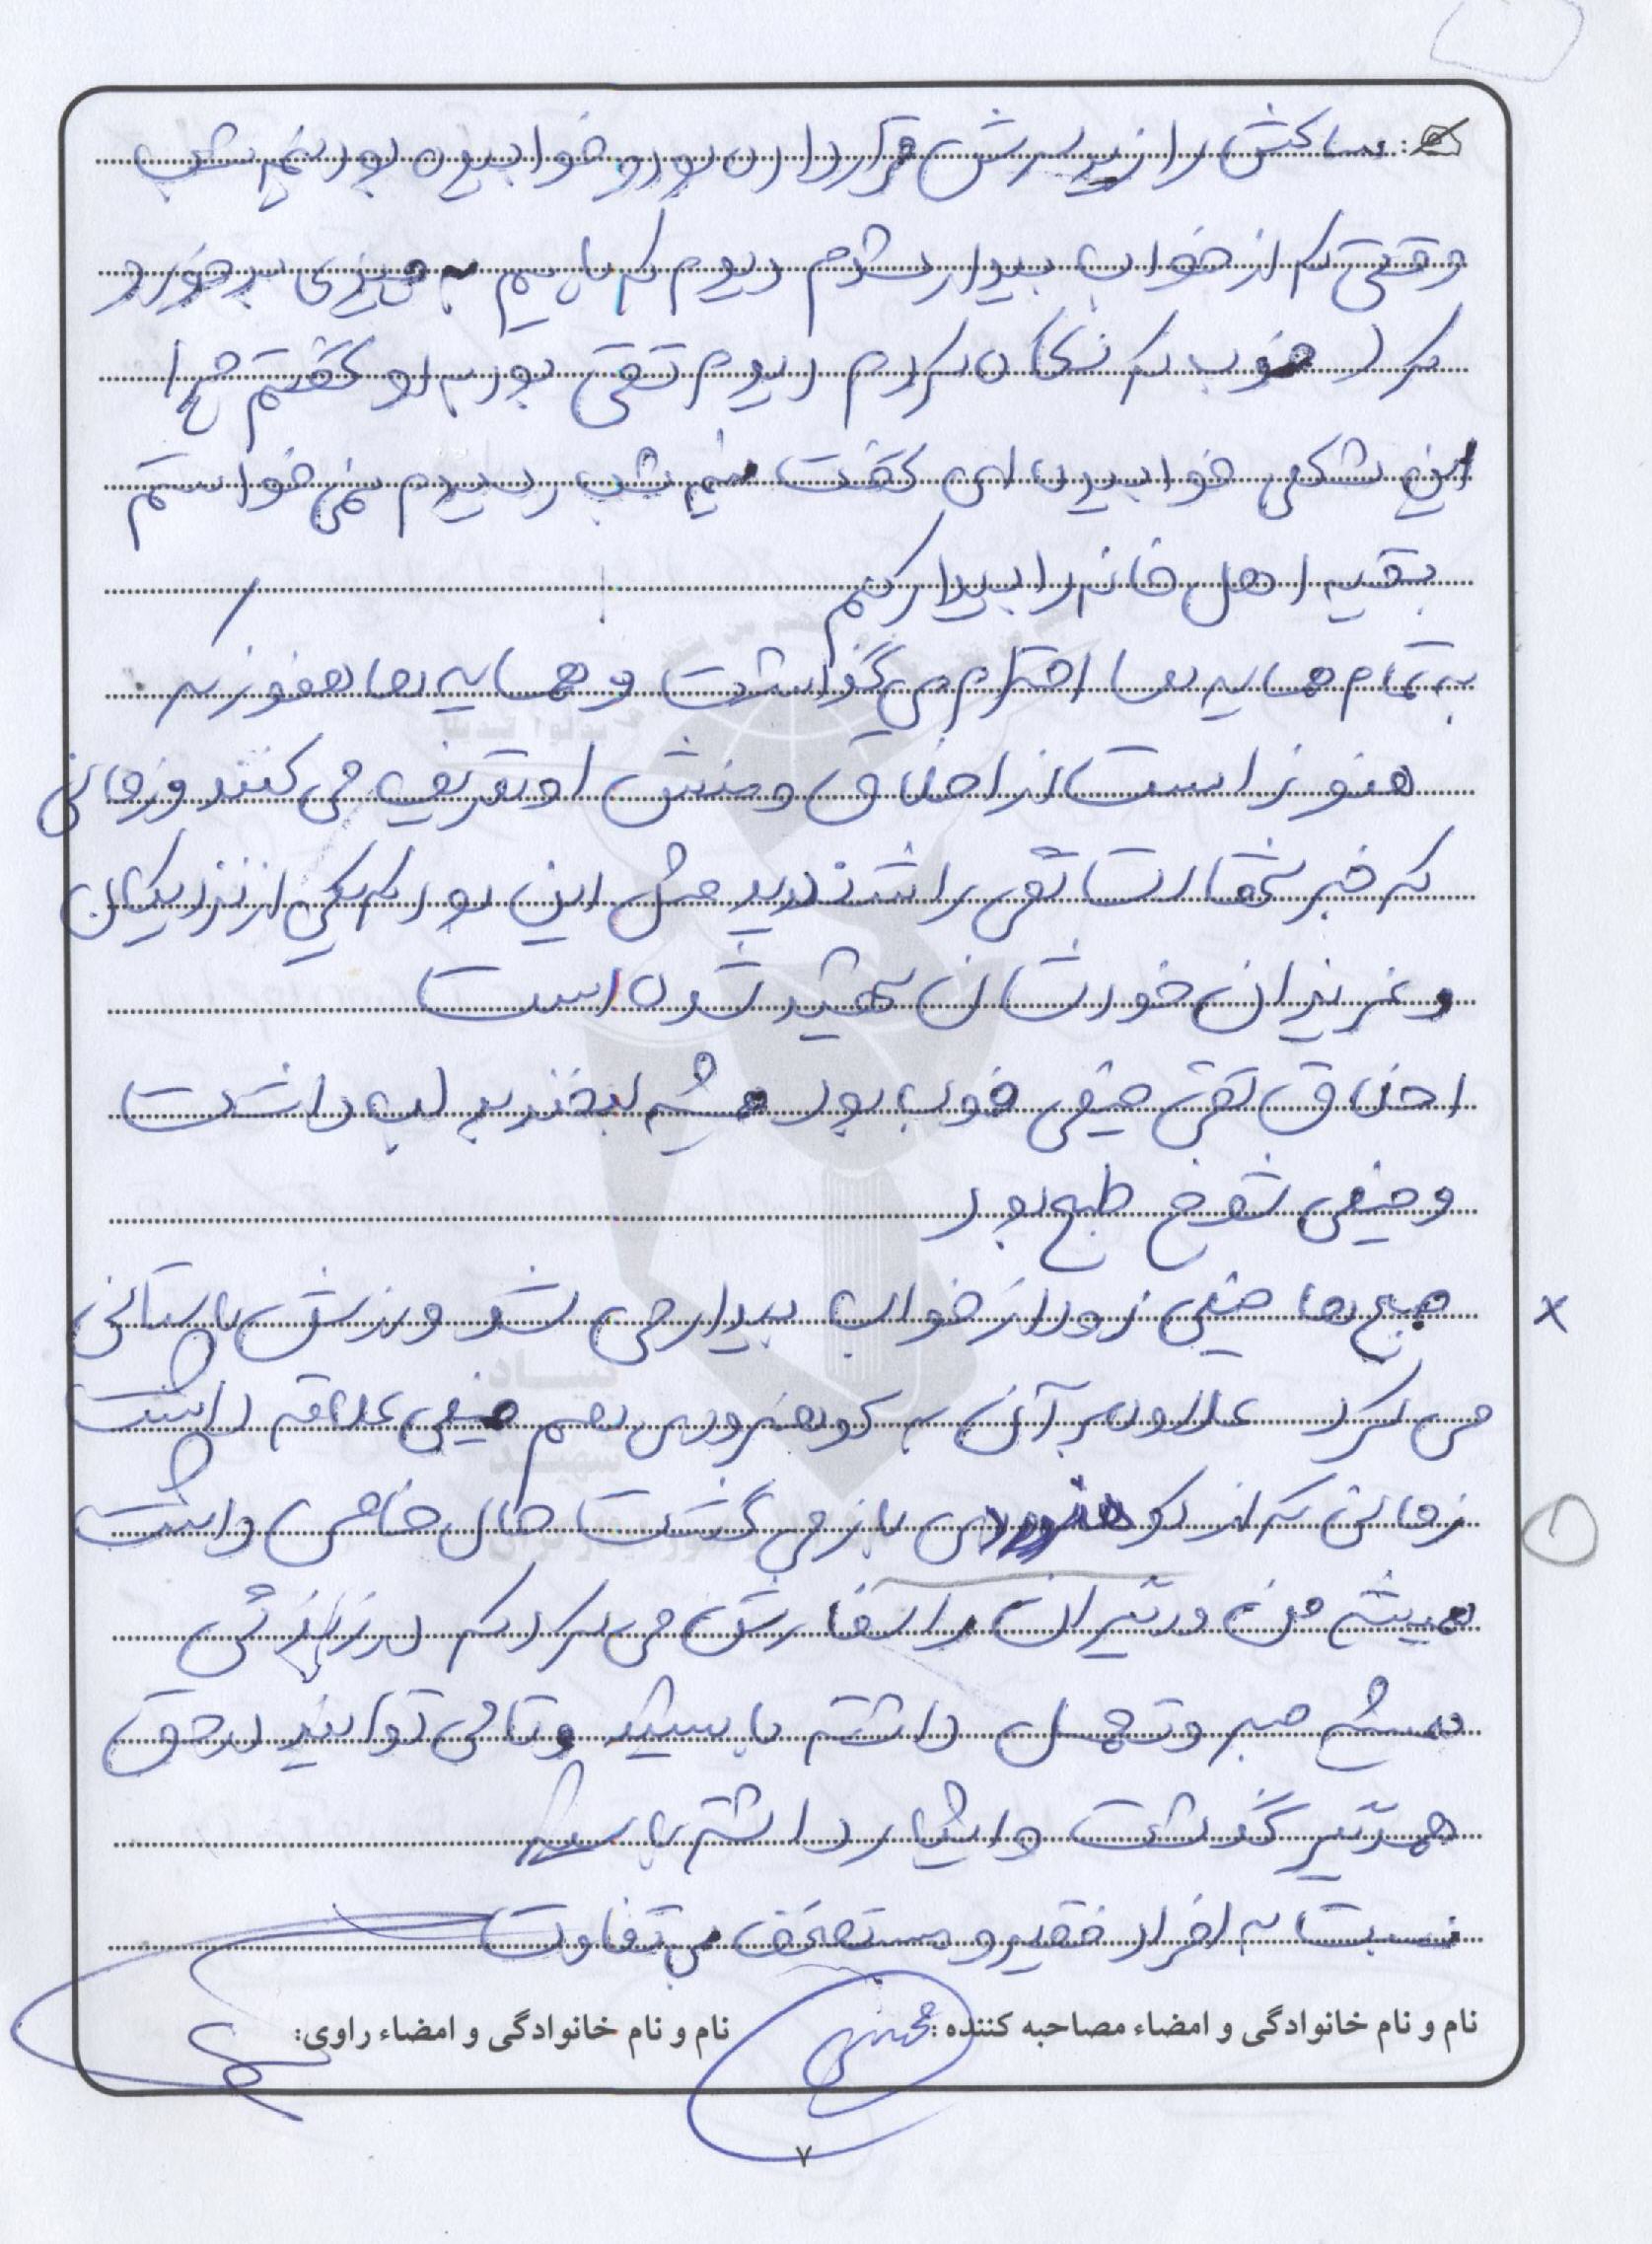 ساکش را زیر سرش قرار داده بود و خوابیده بود نیمه شب
وقتی که از خواب بیدار شدم دیدم که پایم به چیزی برخورد
کرد خوب که نگاه کردم دیدم تقی بود به او گفتم چرا
این شکلی خوابیده ای گفت نیمه شب رسیدم نمی خواستم
بقیه اهل خانه را بیدار کنم
به تمام همسایه ها احترام می گذاشت و همسایه ها هنوز که
هنوز است از اخلاق و منش او تعریف می کنند و زمانی
که خبر شهادت تقی را شنیدند مثل این بود که یکی از نزدیکان
و عزیزان خودشان شهید شده است
اخلاق تقی خیلی خوب بود همیشه لبخند به لب داشت
و خیلی شوخ طبع بود
صبح ها خیلی زود از خواب بیدار می شد و ورزش باستانی
می کرد علاوه بر آن به کوهنوردی هم خیلی علاقه داشت
زمانی که از کوهنوردی باز می گشت حال خاصی داشت
همیشه من و دیگران را سفارش می کرد که در زندگی
همیشه صبر و تحمل داشته باشید و تا می توانید در حق
همدیگر گذشت و ایثار داشته باشید
نسبت به افراد فقیر و مستضعف بی تفاوت
نام و نام خانوادگی و امضاء مصاحبه کننده: نام و نام خانوادگی و امضاء راوی:
۷